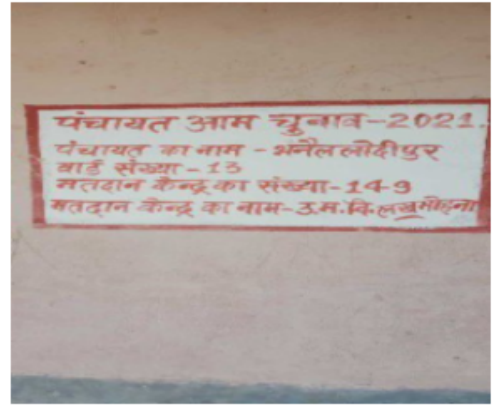 पंचायत आम चुनाव-2021.
पंचायत का नाम - भनैल लोदीपुर
वार्ड संख्या - 13
मतदान केन्द्र का संख्या-149
मतदान केन्द्र का नाम-उ.म.वि.लखुमोहना